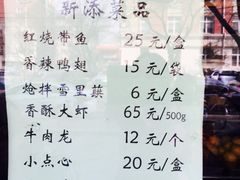 新添菜品
红烧带鱼 25元/盒
香辣鸭翅 15元/袋
炝拌雪里蕻 6元/盒
香酥大虾 65元/500g
牛肉龙 12元/个
小点心 20元/盒